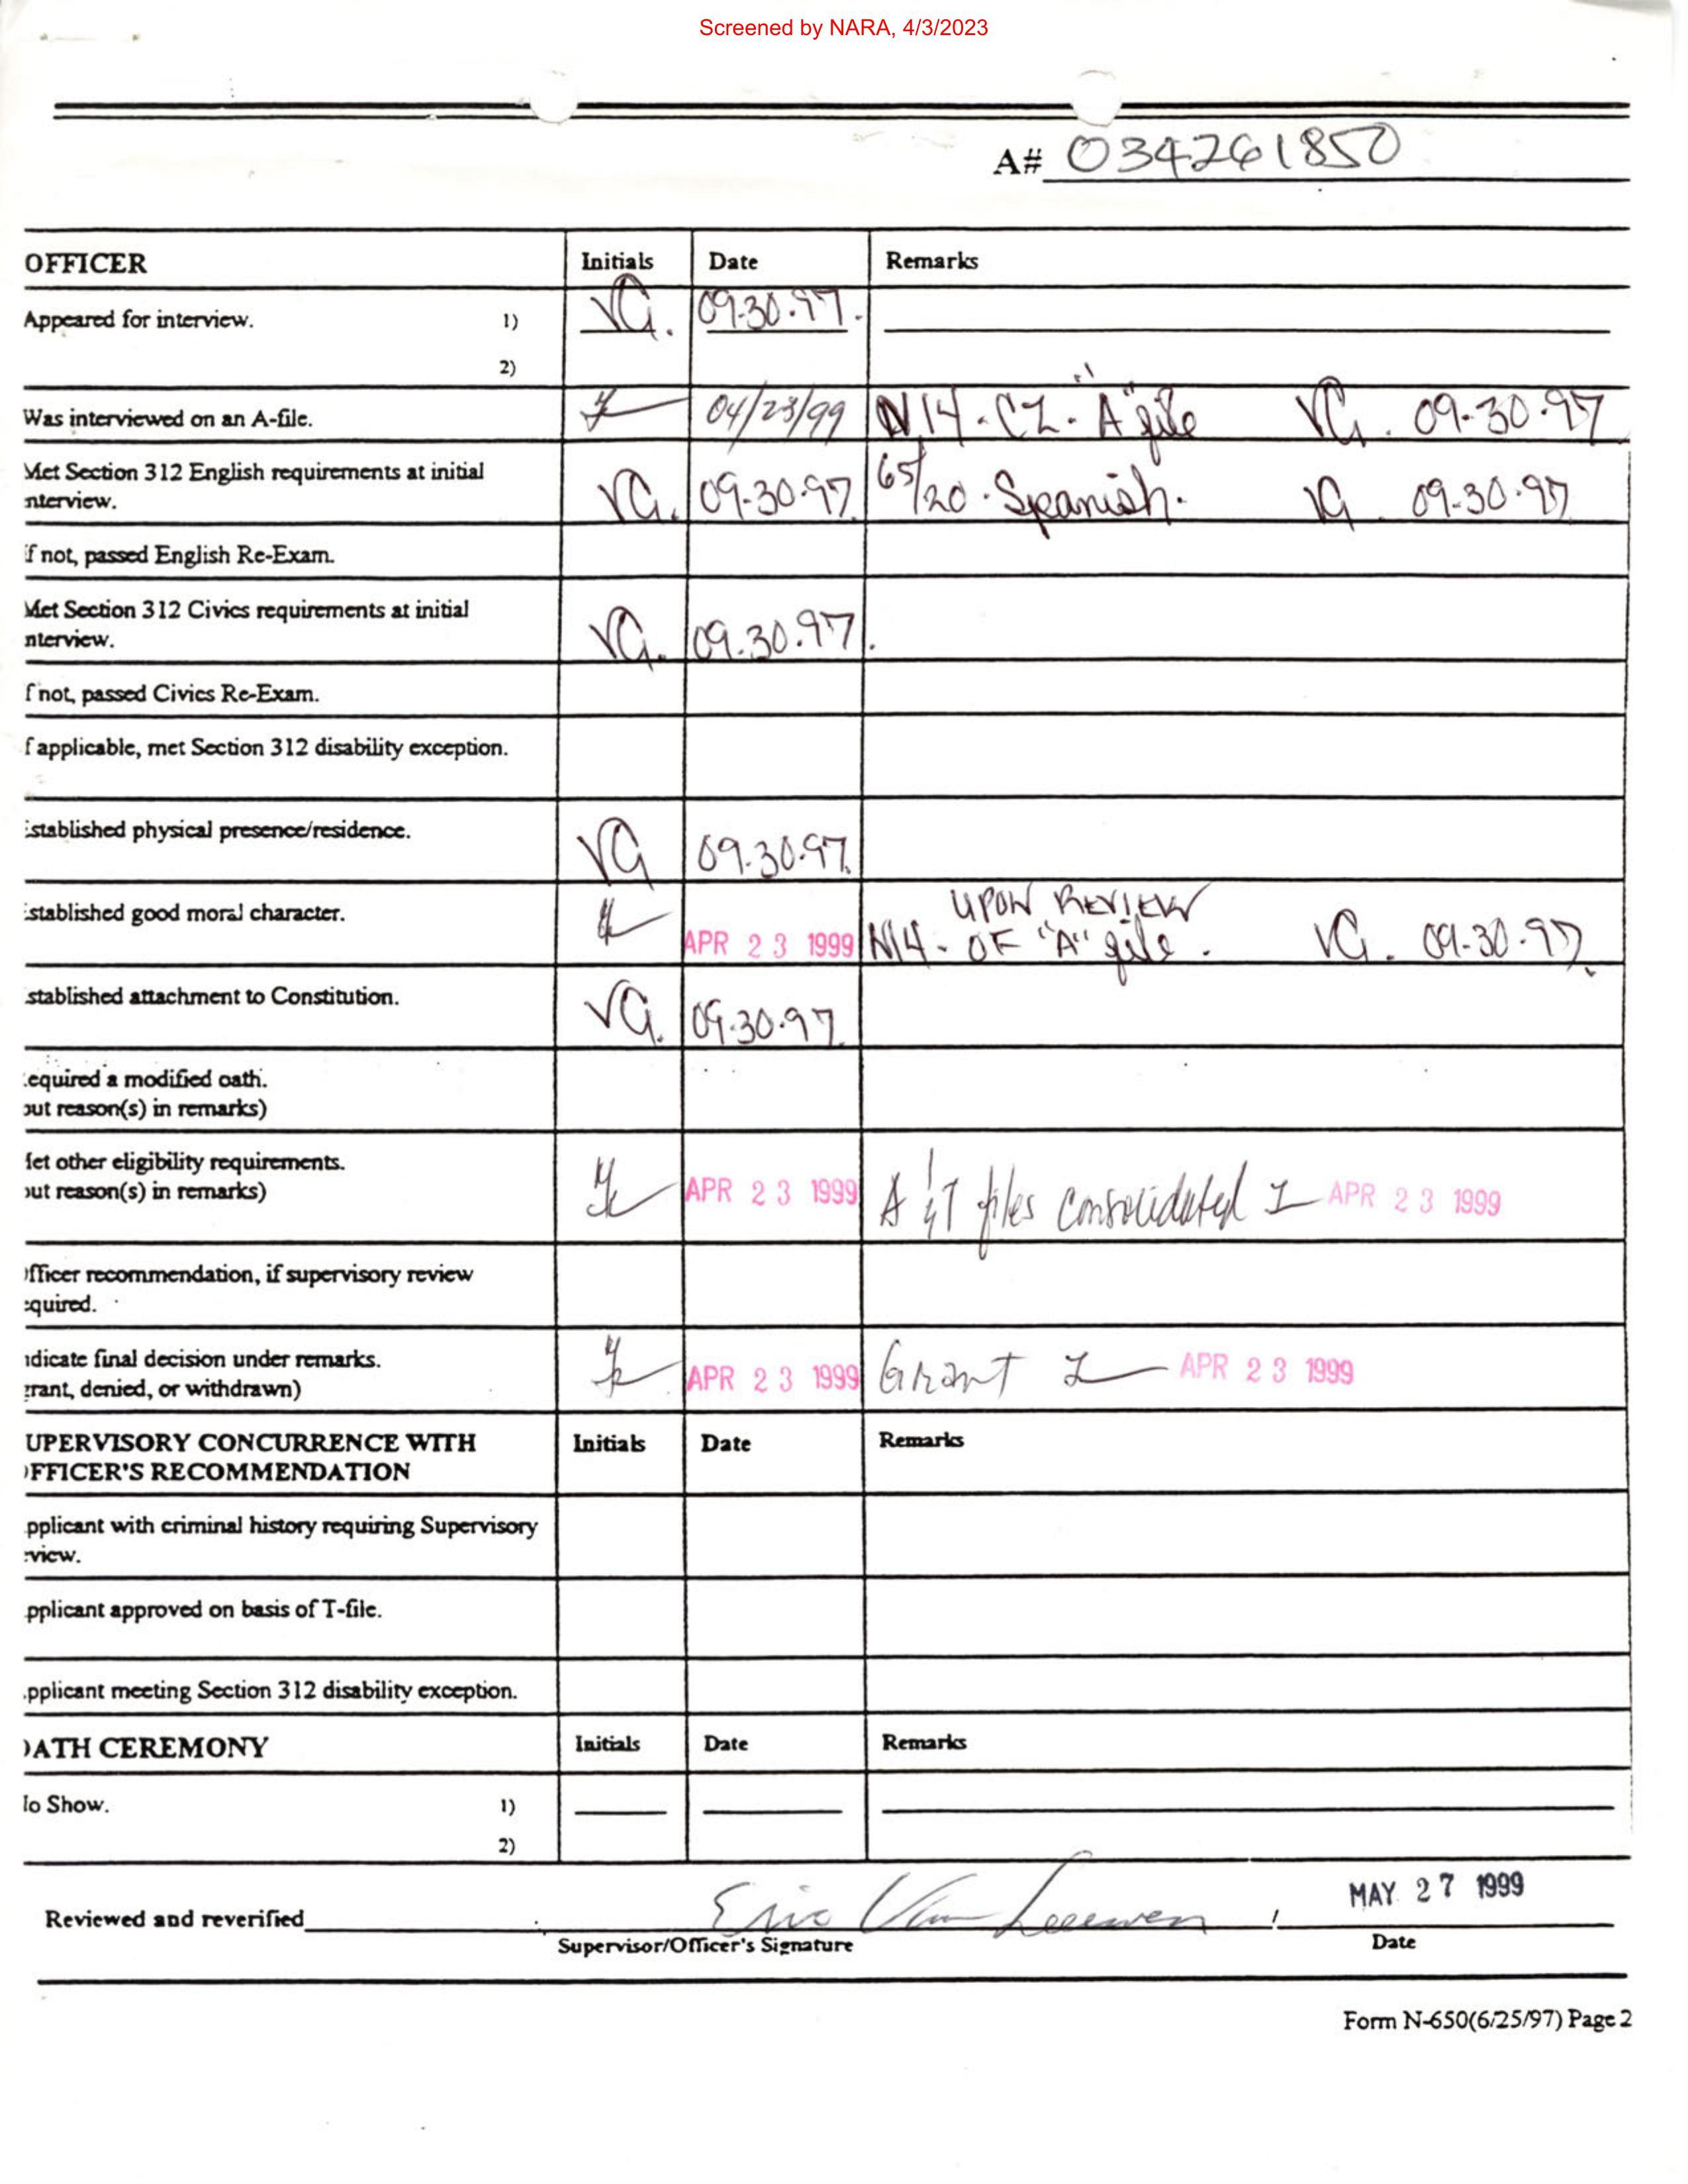 Screened by NARA, 4/3/2023
A# 034261850
OFFICER Initials Date Remarks
Appeared for interview. 1) VG. 09.30.97.
2)
Was interviewed on an A-file. 04/23/99 N14. CZ. "A" file VG. 09.30.97
Met Section 312 English requirements at initial
nterview. VG. 09.30.97. 65/20. Spanish. VG. 09.30.97
f not, passed English Re-Exam.
Met Section 312 Civics requirements at initial
nterview. VG. 09.30.97.
f not, passed Civics Re-Exam.
f applicable, met Section 312 disability exception.
stablished physical presence/residence. VG 09.30.97.
UPON REVIEW
stablished good moral character. APR 23 1999 N14. OF "A" file. VG. 09.30.97.
stablished attachment to Constitution. VG. 09.30.97.
equired a modified oath.
out reason(s) in remarks)
et other eligibility requirements.
out reason(s) in remarks) APR 23 1999 A & T files consolidated APR 23 1999
fficer recommendation, if supervisory review
equired.
ndicate final decision under remarks.
grant, denied, or withdrawn) APR 23 1999 Grant APR 23 1999
UPERVISORY CONCURRENCE WITH Initials Date Remarks
OFFICER'S RECOMMENDATION
pplicant with criminal history requiring Supervisory
eview.
pplicant approved on basis of T-file.
pplicant meeting Section 312 disability exception.
OATH CEREMONY Initials Date Remarks
No Show. 1)
2)
Reviewed and reverified Eric Van Leeuwen MAY 27 1999
Supervisor/Officer's Signature Date
Form N-650(6/25/97) Page 2